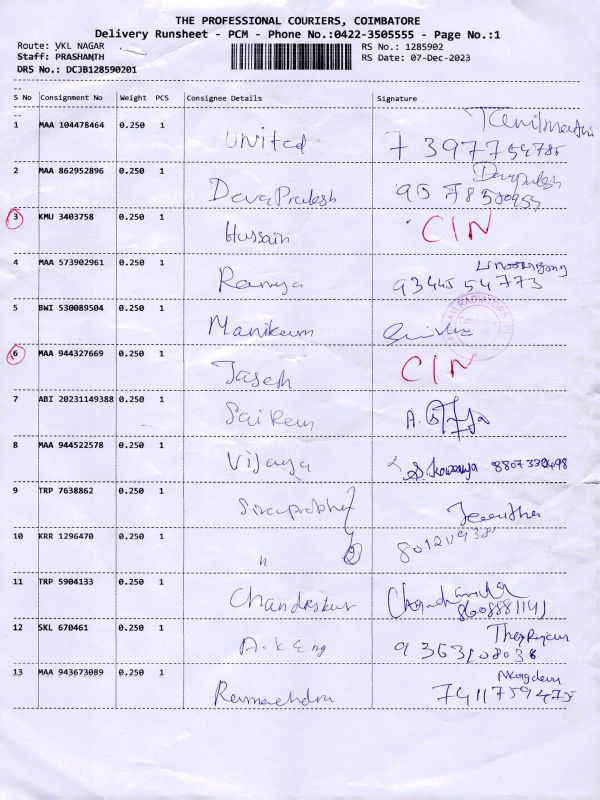 THE PROFESSIONAL COURIERS, COIMBATORE
Delivery Runsheet - PCM - Phone No.:0422-3505555 - Page No.:1
Route: VKL NAGAR
RS No.: 1285902
Staff: PRASHANTH
RS Date: 07-Dec-2023
DRS No.: DCJB128590201
S No Consignment No Weight PCS Consignee Details Signature
1 MAA 104478464 0.250 1 United
2 MAA 862952896 0.250 1 DevaPrakash
3 KMU 3403758 0.250 1 Hussain CIN
4 MAA 573902961 0.250 1 Ramya 93445 54773
5 BWI 530089504 0.250 1 Manikum
6 MAA 944327669 0.250 1 CIN
7 ABI 20231149388 0.250 1 Sai Ram
8 MAA 944522578 0.250 1 Vijaya 8807330498
9 TRP 7638862 0.250 1
10 KRR 1296470 0.250 1 "
11 TRP 5904133 0.250 1 8608881141
12 SKL 670461 0.250 1 A.K Eng
13 MAA 943673089 0.250 1 7411759475